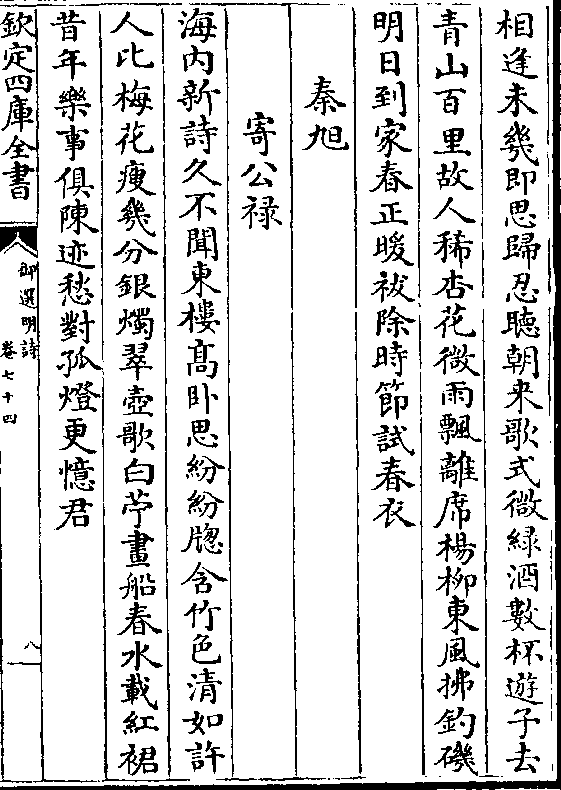 相逢未幾即思歸忍聴朝来歌式微緑酒數杯遊子去
青山百里故人稀杏花微雨飄離席楊柳東風拂釣磯
明日到家春正暖祓除時節試春衣
秦旭
寄公禄
海内新詩久不聞東樓髙卧思紛紛牎含竹色清如許
人比梅花瘦幾分銀燭翠壺歌白苧畫船春水載紅裙
昔年樂事俱陳迹愁對孤燈更憶君
欽定四庫全書
御選明詩
卷七十四
八